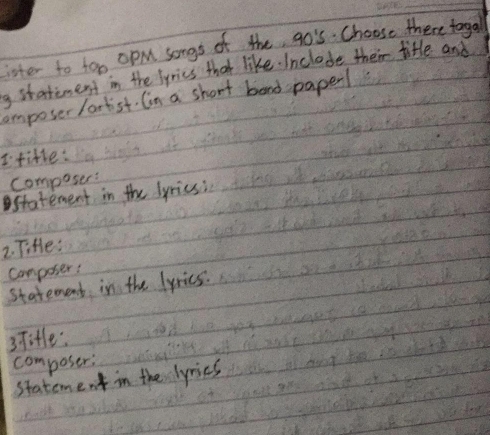 ister to top OPM songs of the 90's. Choose there tagal
g statement in the lyrics that like. Include their title and
omposer/artist. (in a short bond paper)
1. title:
Composer:
Statement in the lyrics:
2. Title:
Composer:
Statement in the lyrics.
3 Title:
Composer:
Statement in the lyrics